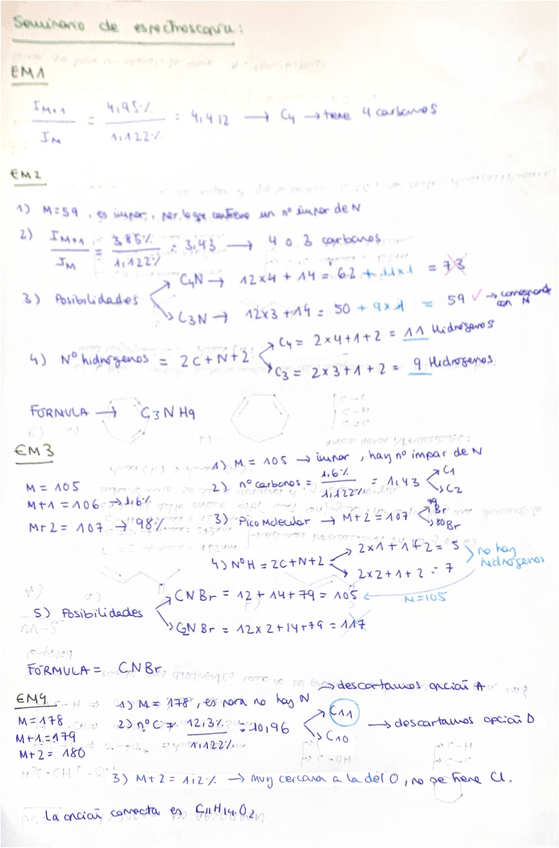 Seminario de espectroscopía:
EM1
I_{M+1} / I_M = 4,95% / 1,122% = 4,412 → C4 → tiene 4 carbonos
EM2
1) M=59, es impar, por lo que contiene un nº impar de N
2) I_{M+1} / I_M = 3,85% / 1,122% = 3,43 → 4 o 3 carbonos
3) Posibilidades
C4N → 12x4 + 14 = 62 + 11x1 = 73
C3N → 12x3 + 14 = 50 + 9x1 = 59 ✓ → corresponde con M
4) Nº hidrógenos = 2C+N+2
C4 = 2x4+1+2 = 11 Hidrógenos
C3 = 2x3+1+2 = 9 Hidrógenos
FÓRMULA → C3NH9
EM3
M = 105
M+1 = 106 → 1,6%
M+2 = 107 → 98%
1) M = 105 → impar, hay nº impar de N
2) nº carbonos = 1,6% / 1,122% = 1,43
C1
C2
3) Pico Molecular → M+2 = 107
79Br
80Br
4) NºH = 2C+N+2
2x1+1+2 = 5
2x2+1+2 = 7
no hay hidrógenos
5) Posibilidades
CNBr = 12+14+79 = 105
M=105
C2NBr = 12x2+14+79 = 117
FÓRMULA = CNBr
EM4
M=178
M+1=179
M+2= 180
1) M = 178, es par no hay N → descartamos opción A
2) nºC = 12,3% / 1,122% = 10,96
C11
C10
→ descartamos opción D
3) M+2 = 1,2% → muy cercana a la del O, no se tiene Cl.
La opción correcta es C11H14O2